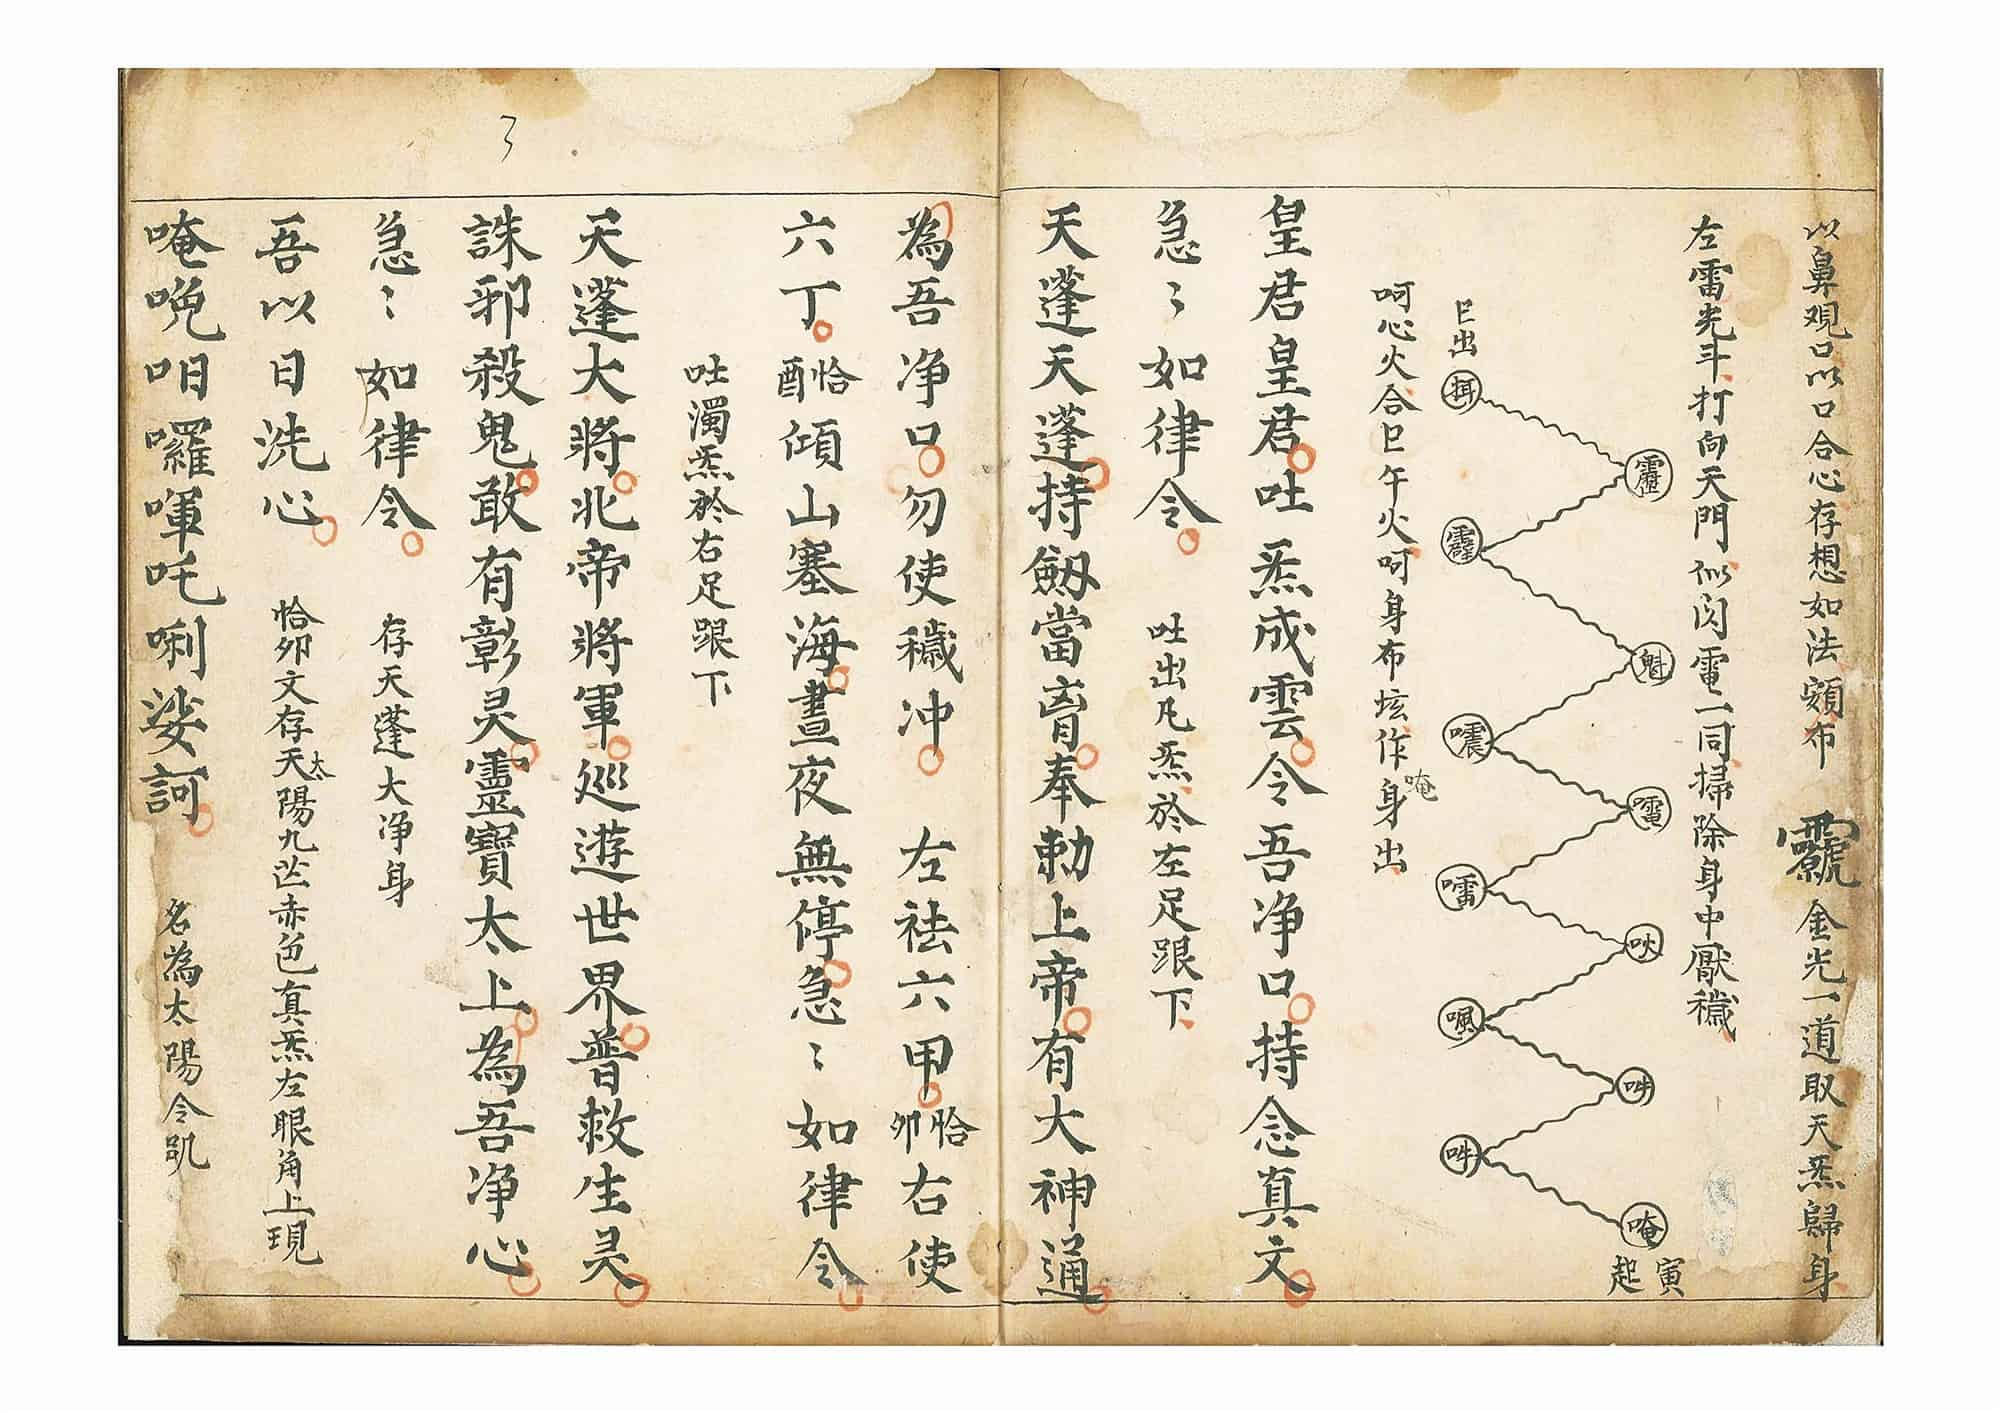 以鼻观口以口合心存想如法額布 金光一道取天炁歸身
左雷光斗打向天門似闪電一同掃除身中厭穢
寅起
唵
吽
𠰷
飍
吙
嚍
嚏
巳出
呵心火合巳午火呵身布垓作身唵出
皇君皇君吐炁成雲令吾净口持念真文
急〻如律令 吐出凡炁於左足跟下
天蓬天蓬持劔當胷奉勅上帝有大神通
為吾净口勿使穢冲 左祛六甲恰卯右使
六丁恰酉傾山塞海晝夜無停急〻如律令
吐濁炁於右足跟下
天蓬大將北帝將軍巡遊世界普救生灵
誅邪殺鬼敢有彰灵靈寶太上為吾净心
急〻如律令 存天蓬大净身
吾以日洗心 恰卯文存天太陽九芒赤色真炁左眼角上現
唵㕙呬囉喗吒唎娑訶 名為太陽令
3